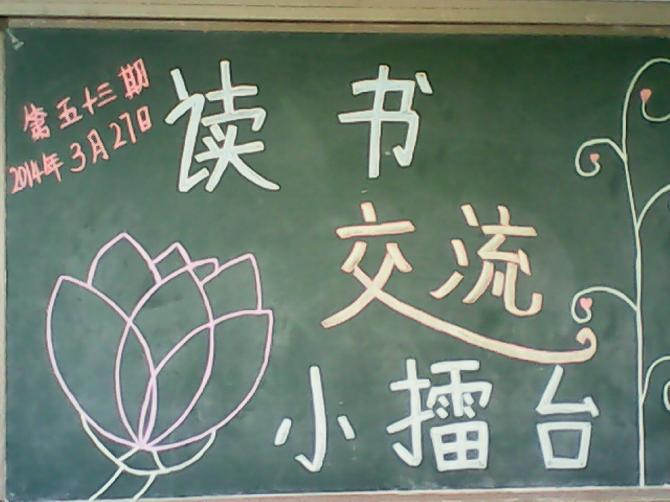 第五十三期
2014年3月27日
读书
交流
小擂台